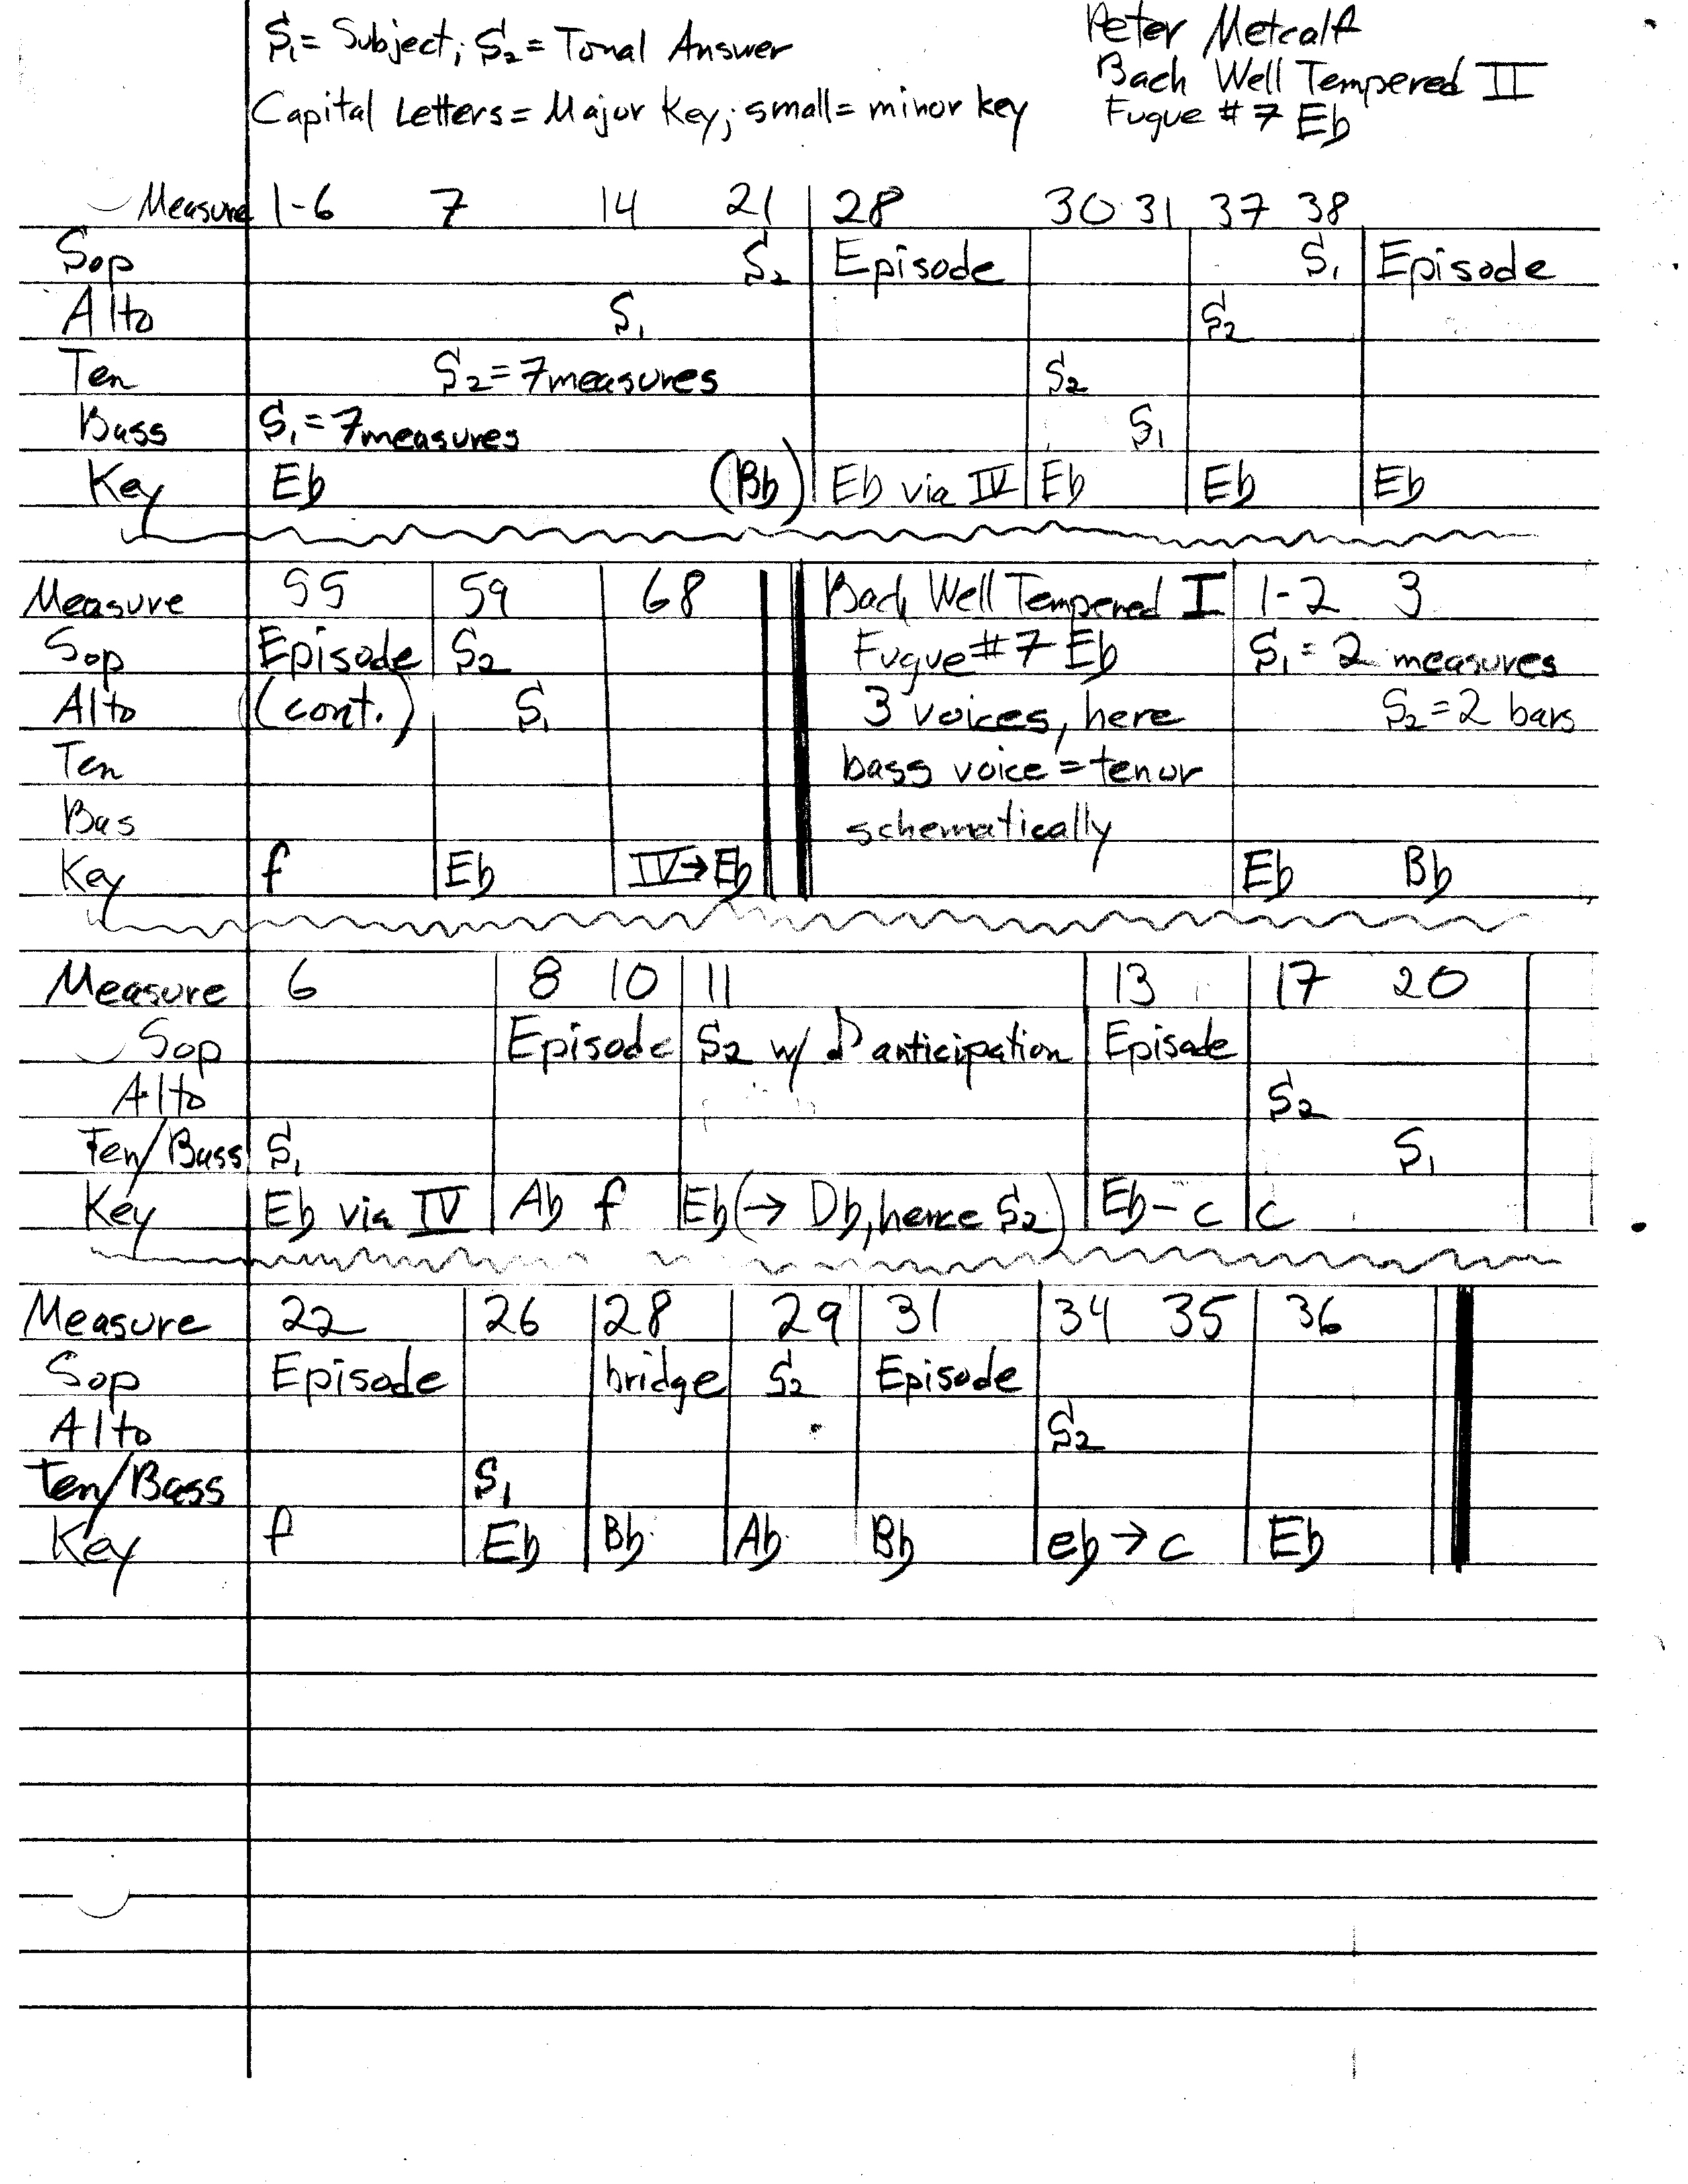 S1 = Subject; S2 = Tonal Answer
Capital Letters = Major Key; small = minor key
Peter Metcalf
Bach Well Tempered II
Fugue # 7 Eb
Measure 1-6 7 14 21 28 30 31 37 38
Sop S2 Episode S1 Episode
Alto S1 S2
Ten S2 = 7 measures S2
Bass S1 = 7 measures S1
Key Eb (Bb) Eb via IV Eb Eb Eb
Measure 55 59 68 Bach Well Tempered I 1-2 3
Sop Episode S2 Fugue # 7 Eb S1 = 2 measures
Alto (cont.) S1 3 voices, here S2 = 2 bars
Ten bass voice = tenor
Bas schematically
Key f Eb IV → Eb Eb Bb
Measure 6 8 10 11 13 17 20
Sop Episode S2 w/ ♪ anticipation Episode
Alto S2
Ten/Bass S1 S1
Key Eb via IV Ab f Eb (→ Db, hence S2) Eb - c c
Measure 22 26 28 29 31 34 35 36
Sop Episode bridge S2 Episode
Alto S2
Ten/Bass S1
Key f Eb Bb Ab Bb eb → c Eb